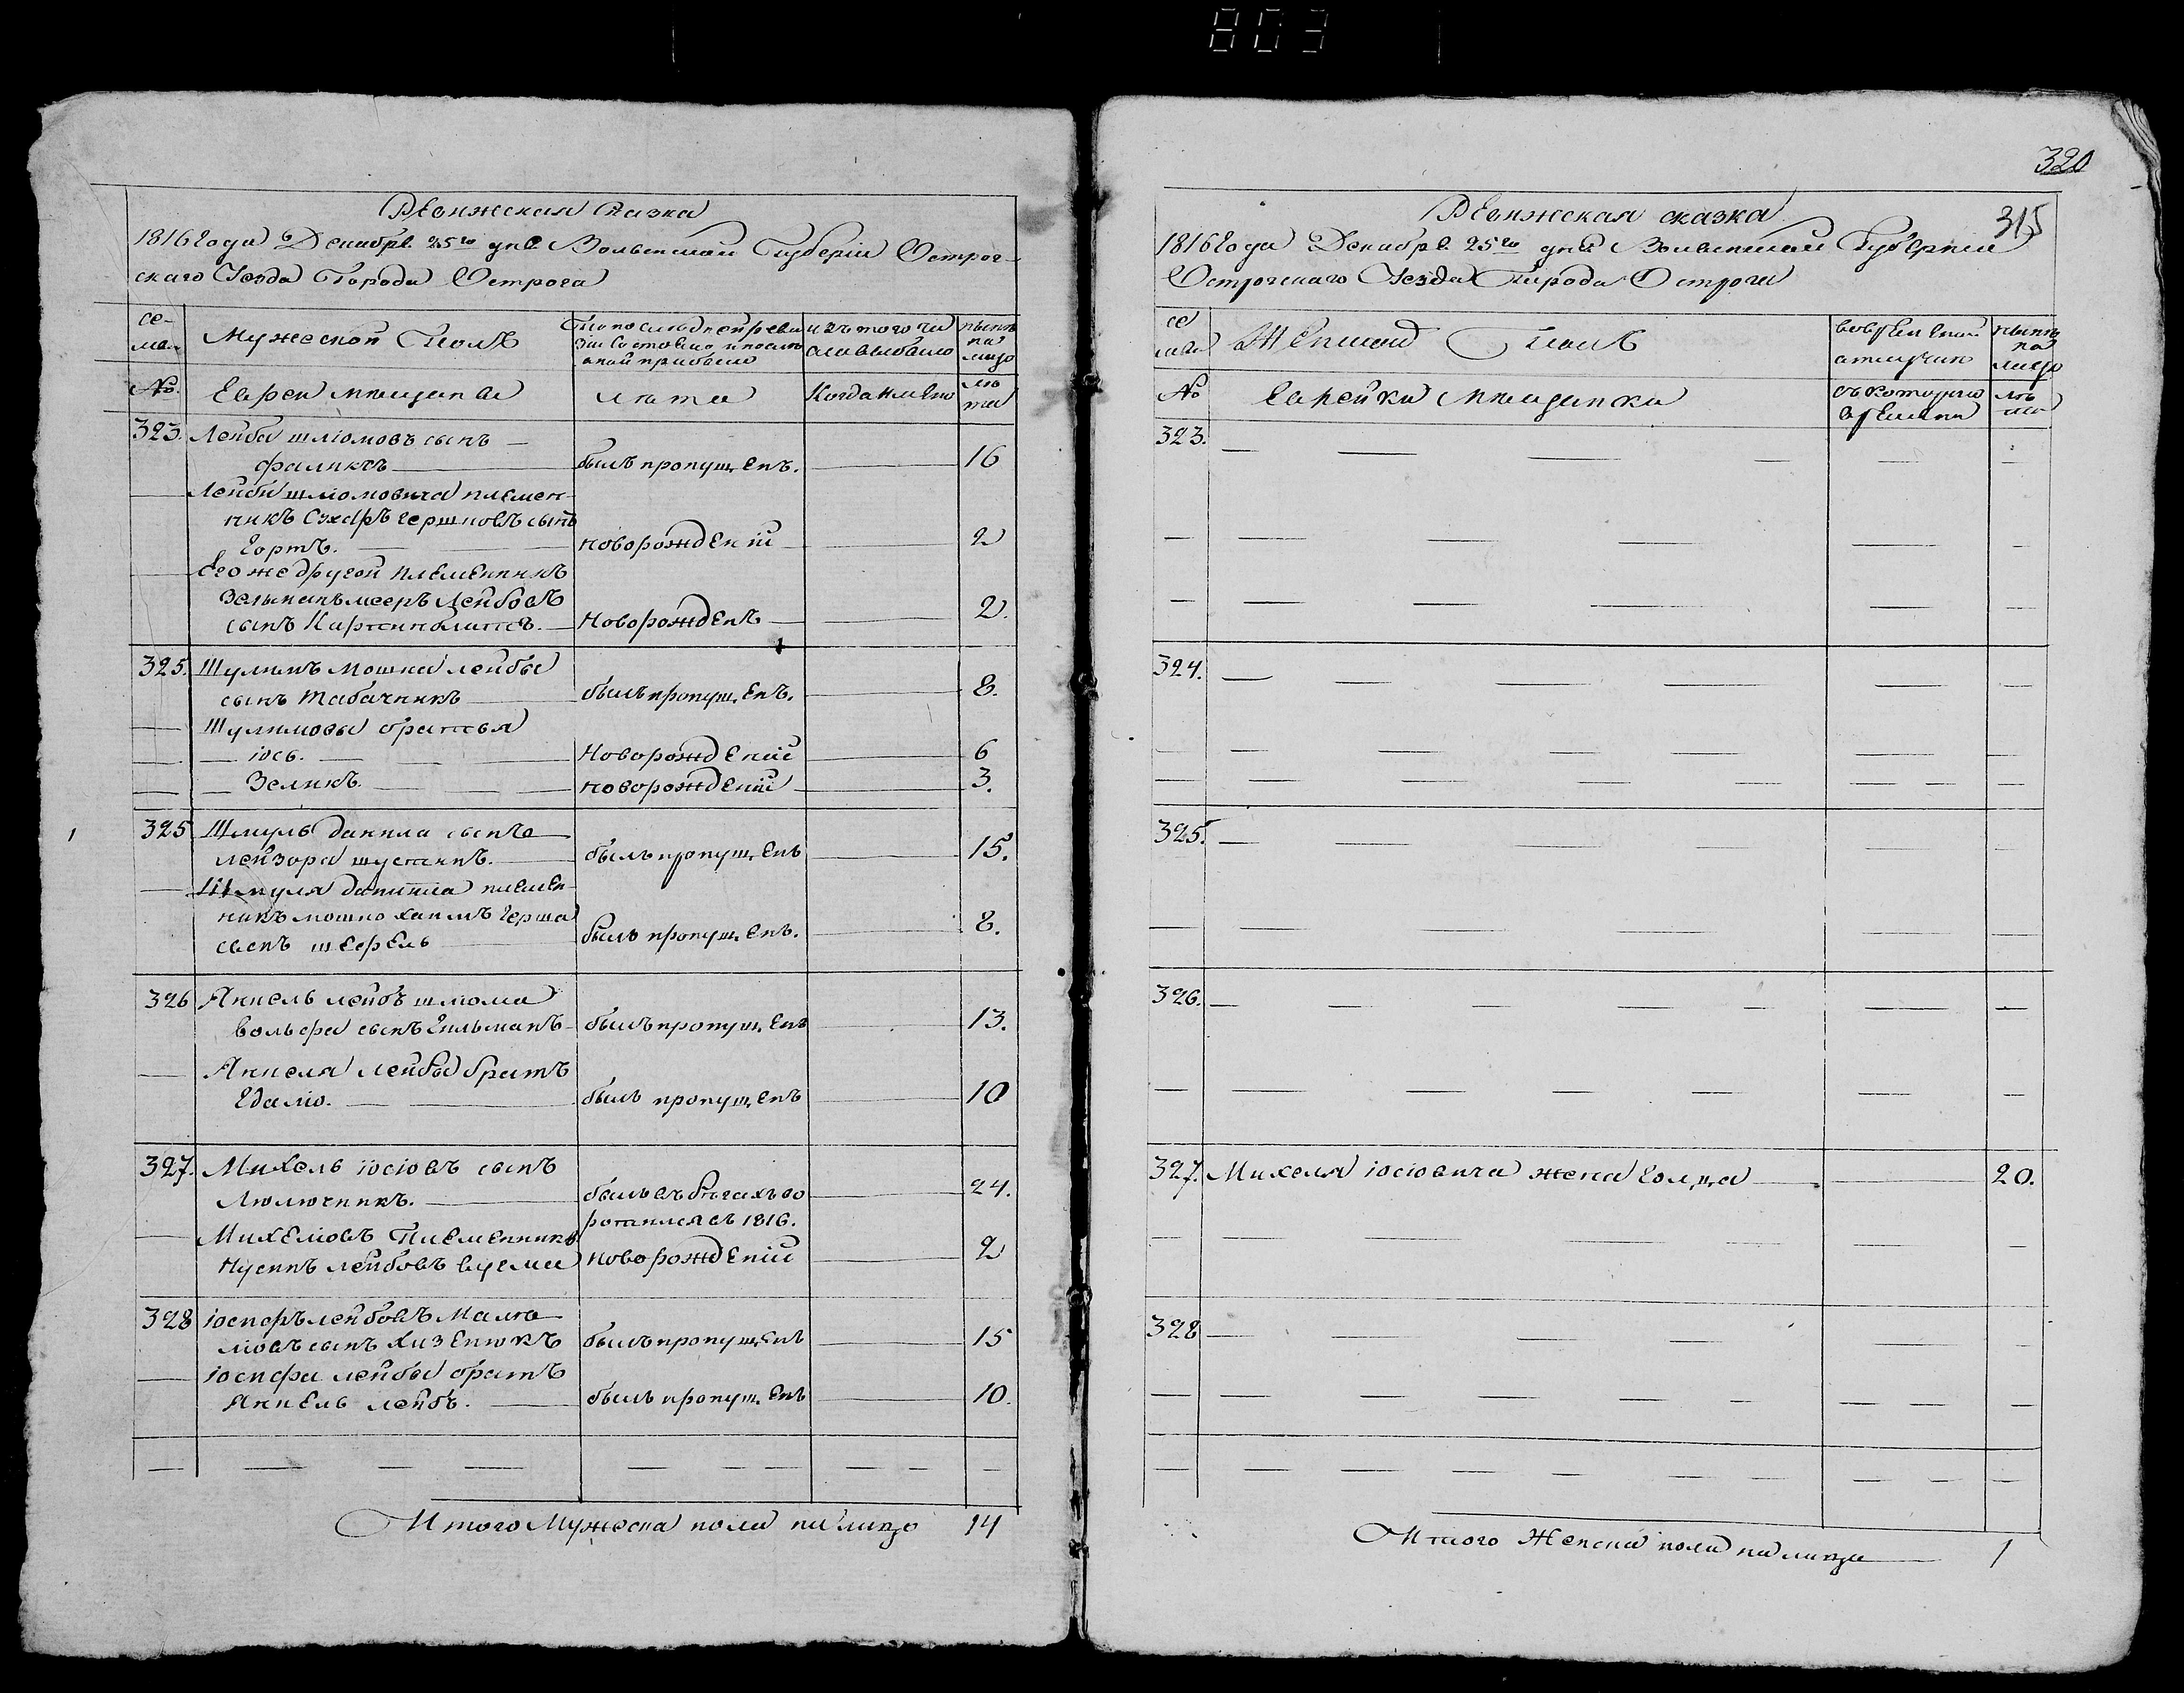 803
Ревижская сказка
1816 года Декабря 25го дня Волынской Губерніи Острог-
скаго Уезда Города Острога
се-
мьи
Мужеской Полъ
По последней реви
зіи состояло и после
оной прибыло
изъ того чи
сла выбыло
ныне
на
лицо
№
Евреи мещане
лета
Когда имено
ле
та
323. Лейба шліомовъ сынъ
фаликъ был пропущенъ. 16
Лейби шліомовича племен-
никъ Сухеръ гершковъ сынъ
Гортъ. новорожденій 2
Его же другой племенникъ
Зельманъ меер Лейбовъ
сынъ новорожденъ 2.
325. Шулимъ мошка лейбы
сынъ табачникъ был пропущенъ. 8.
Шулимовы братья
іось. Новорожденій 6
Зеликъ. новорожденій 3.
325 Шмуль данила сынъ
лейзора шустинъ. былъ пропущенъ 15.
Шмуля данила племен-
никъ мошко хаимъ герша
сынъ шферель былъ пропущенъ. 8.
326 Янкель лейбъ шлома
вольфа сынъ Гильманъ былъ пропущенъ 13.
Янкеля Лейбы братъ
Едаліо. былъ пропущенъ 10
327. Михель іосіовъ сынъ
Люлючникъ. былъ въ бегахъ во 24.
ротился въ 1816.
Михеліовъ Племенникъ
Нусинъ лейбовъ новорожденій 2
328 іосифъ лейбовъ
сынъ былъ пропущенъ 15
іосифа лейбы братъ
Янкель лейбъ. былъ пропущенъ 10.
Итого Мужеска пола на лицо 14
320
315
Ревижская сказка
1816 года Декабря 25го дня Волынской Губерніи
Острогскаго Уезда Города Острога
се
мьи
Женской Полъ
во временной
отлучки
ныне
на
лицо
№
Еврейки мещанки
съ котораго
времени
ле
та
323.
324.
325.
326.
327. Михеля іосіовича жена Голда 20.
328
Итого Женска пола на лицо 1